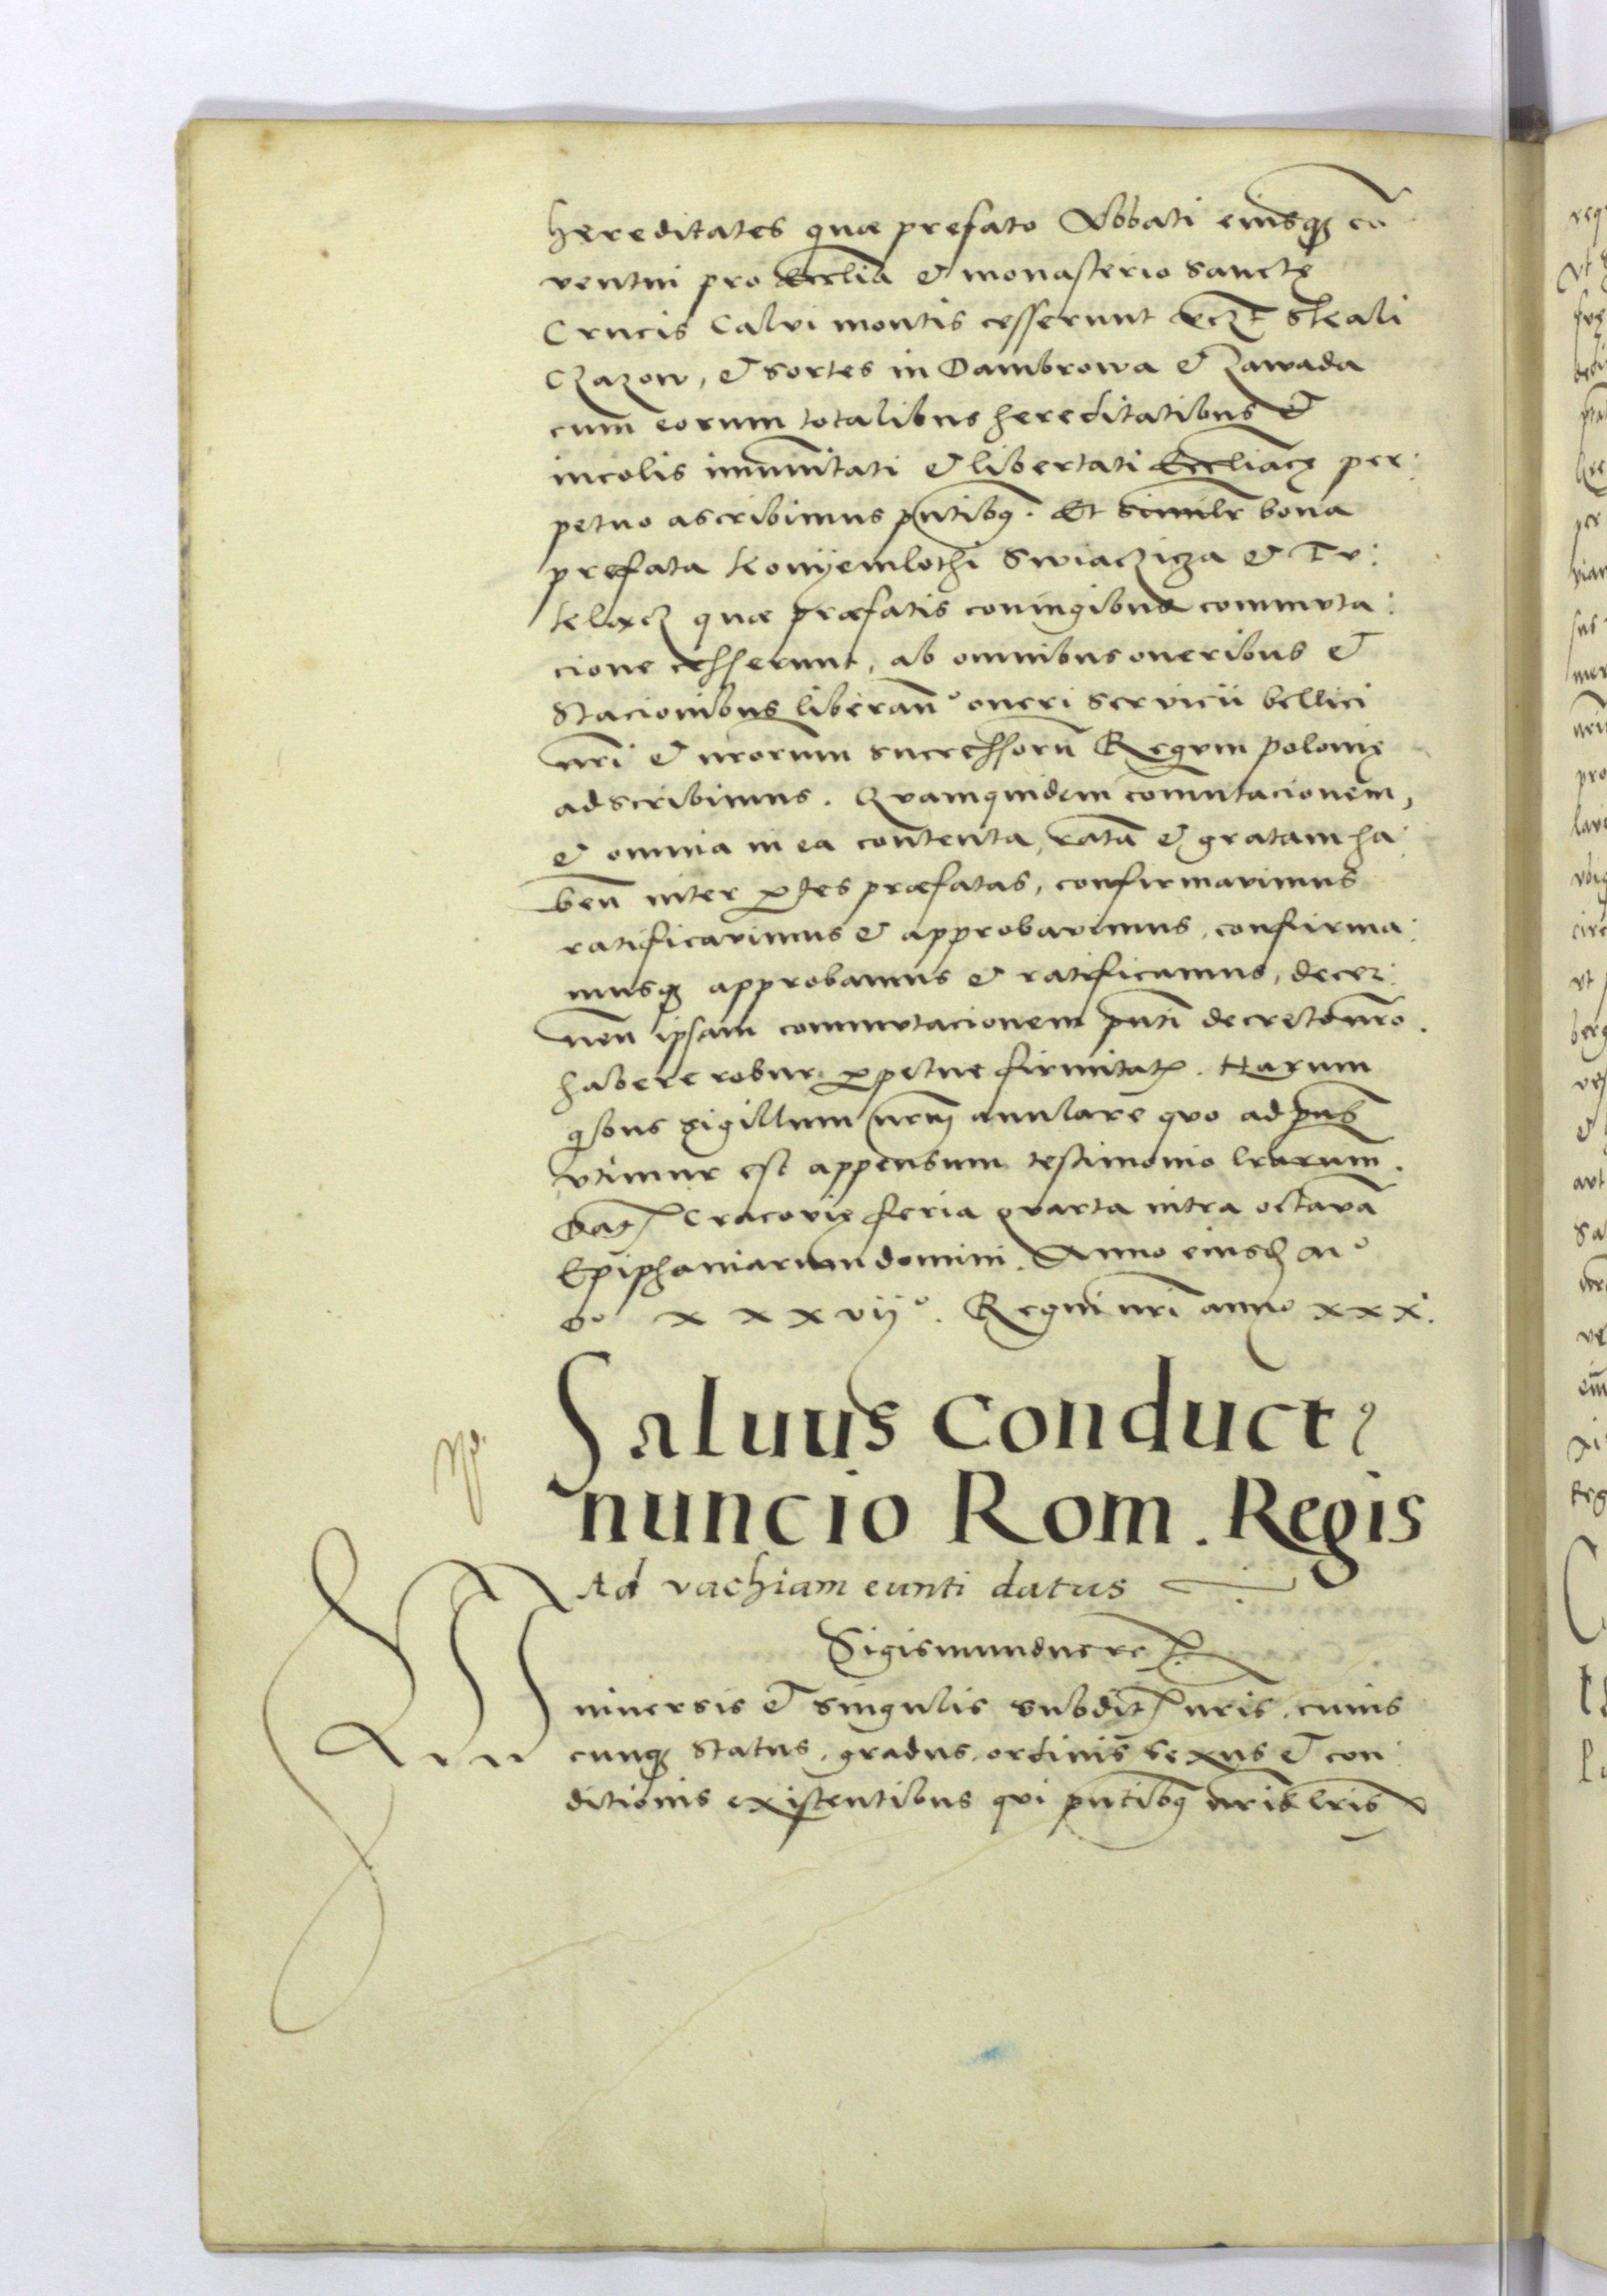 hereditates quae prefato Abbati eiusq; cō
ventui pro Eccliā & monasterio Sanctę
Crucis Calvi montis cesserunt vczt Skali
Czazow, & sortes in Dambrowa & Zawada
cum eorum totalibus hereditatibus &
incolis im̄unitati & libertati Eccliacę per:
petuo ascribimus pn̄tibq. Et similr bona
prefata Konyemlothi Swiacziza & Tu:
klęcz quae præfatis coniugibus commuta:
cione cesserunt, ab omnibus oneribus &
Stacionibus liberan̄° oneri Servicii bellici
nri & nrorum successorū Regum polonię
adscribimus. Quamquidem com̄utacionem,
& omnia in ea contenta, ratā & gratam ha
ben̄ inter ptes præfatas, confirmavimus
ratificavimus & approbavimus, confirma:
musq; approbamus & ratificamus, decer:
nen̄ ipsam commutacionem pn̄ti decreto nr̄o
habere robur perpetue firmitatꝭ. Harum
qbus sigillum nrm̄ anulare quo ad pn̄s
utimur est appensum testimonio lrarum.
Datꝭ Cracovię feria quarta intra octavā
Epiphaniarum domini. Anno eiusd M°
d° xxxvij°. Regni nri anno xxx.
Saluus Conductꝯ
nuncio Rom. Regis
Ad vachiam eunti datus
Sigismundus rex
Universis & singulis subditꝭ nris, cuius
cunq; Status, gradus, ordinis Sexus & con:
ditionis existentibus qui pn̄tibq nris lris